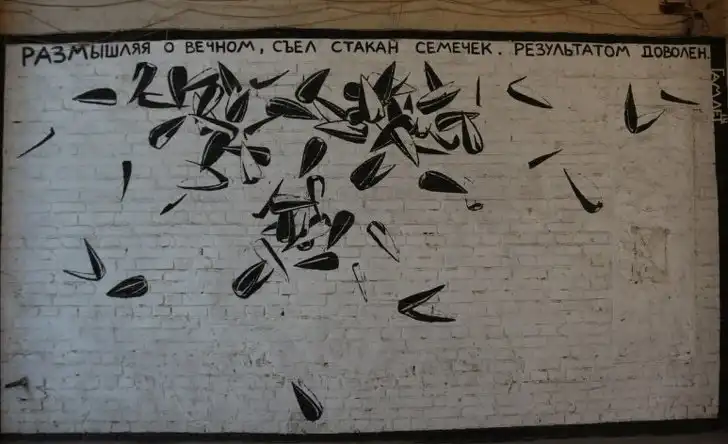 РАЗМЫШЛЯЯ О ВЕЧНОМ, СЪЕЛ СТАКАН СЕМЕЧЕК. РЕЗУЛЬТАТОМ ДОВОЛЕН.